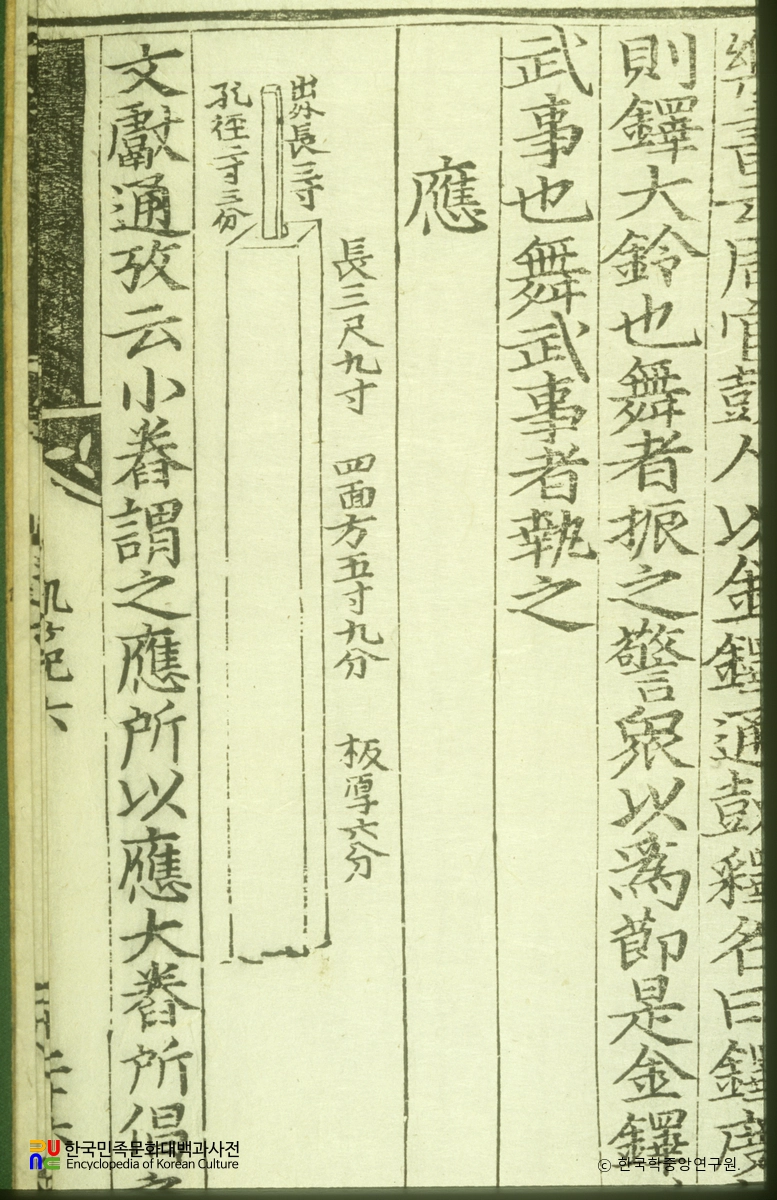 樂書云周官鼓人以金鐸通鼓釋名曰鐸度
則鐸大鈴也舞者振之警衆以爲節是金鐸
武事也舞武事者執之
應
長三尺九寸 四面方五寸九分 板厚六分
出外長三寸
孔徑二寸三分
文獻通攷云小舂謂之應所以應大舂所倡之
한국민족문화대백과사전
Encyclopedia of Korean Culture
© 한국학중앙연구원.